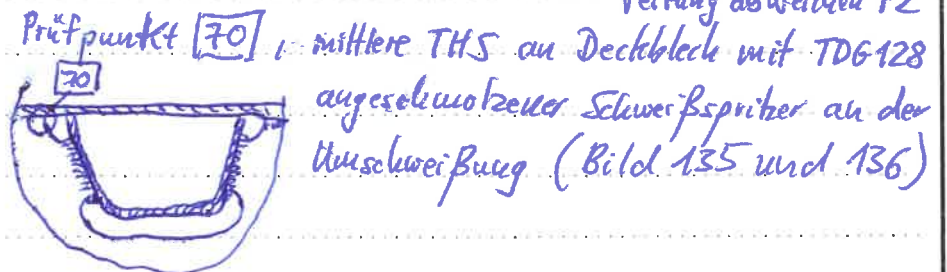 Prüfpunkt 70, mittlere THS an Deckblech mit TDG128
70
angeschmolzener Schweißspritzer an der
Umschweißung (Bild 135 und 136)